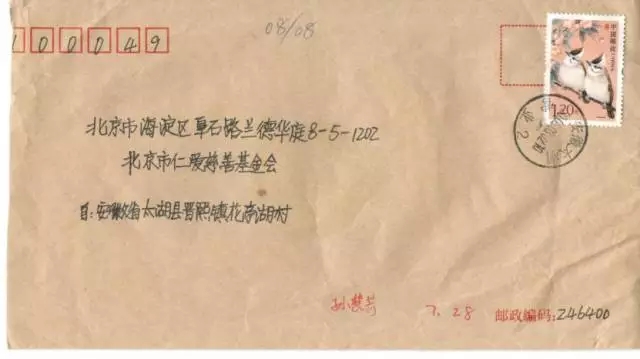 08/08
100049
中国邮政
1.20
北京市海淀区阜石路兰德华庭8-5-1202
北京市仁爱慈善基金会
自:安徽省太湖县晋熙镇花亭湖村
7.28 邮政编码:246400